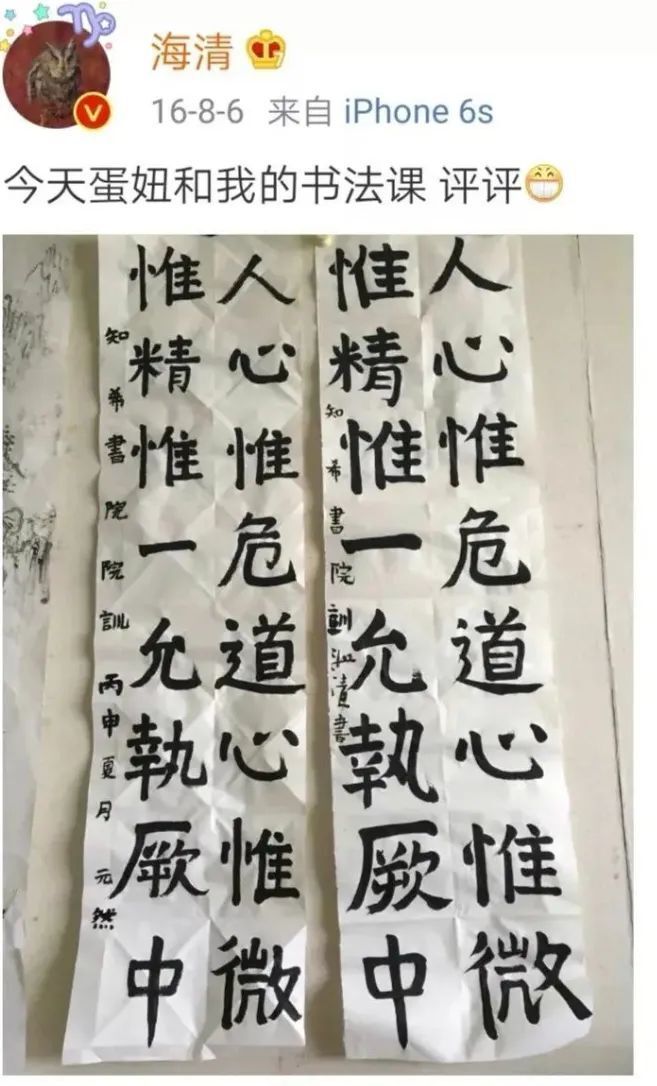 海清
16-8-6 来自 iPhone 6s
今天蛋妞和我的书法课 评评
人心惟危道心惟微
惟精惟一允執厥中
知希書院訓海清書
人心惟危道心惟微
惟精惟一允執厥中
知希書院院訓丙申夏月元然